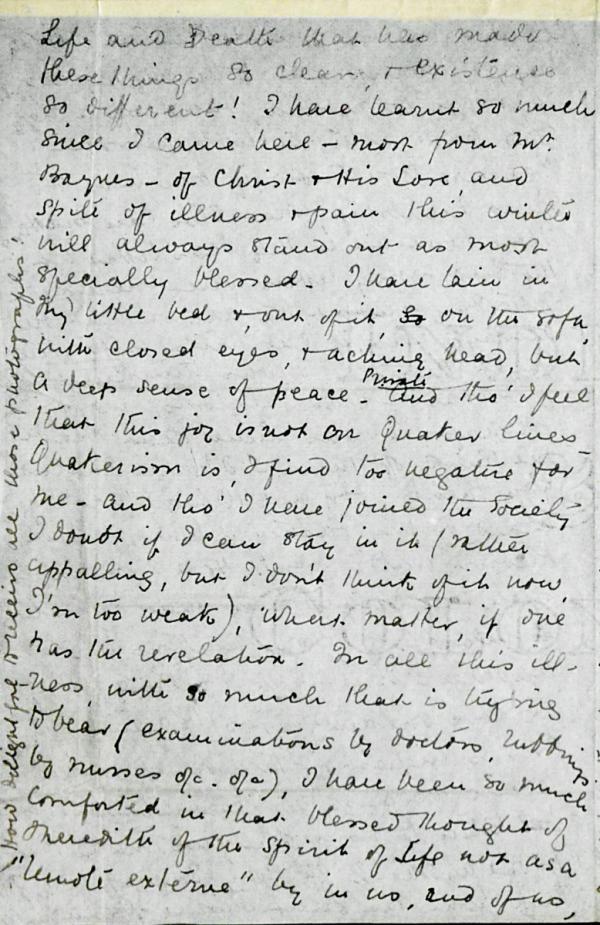 Life and Death that has made
these things so clear, & existence
so different! I have learnt so much
since I came here – most from Mr.
Baynes – of Christ & His Love, and
spite of illness & pain this winter
will always stand out as most
specially blessed. I have lain in
my little bed &, out of it, so on the sofa,
with closed eyes, & aching head, but
a deep sense of peace. Private And tho' I feel
that this joy is not on Quaker lines –
Quakerism is, I find too negative for
me – and tho' I have joined the Society
I doubt if I can stay in it (rather
appalling, but I don't think of it now,
I'm too weak), what matter, if one
has the revelation. In all this ill-
ness, with so much that is trying
to bear (examinations by doctors, rubbings
by nurses &c. &c), I have been so much
comforted in that blessed thought of
Meredith of the Spirit of Life not as a
"remote externe" by in us, and of us,
How delightful to receive all those photographs!